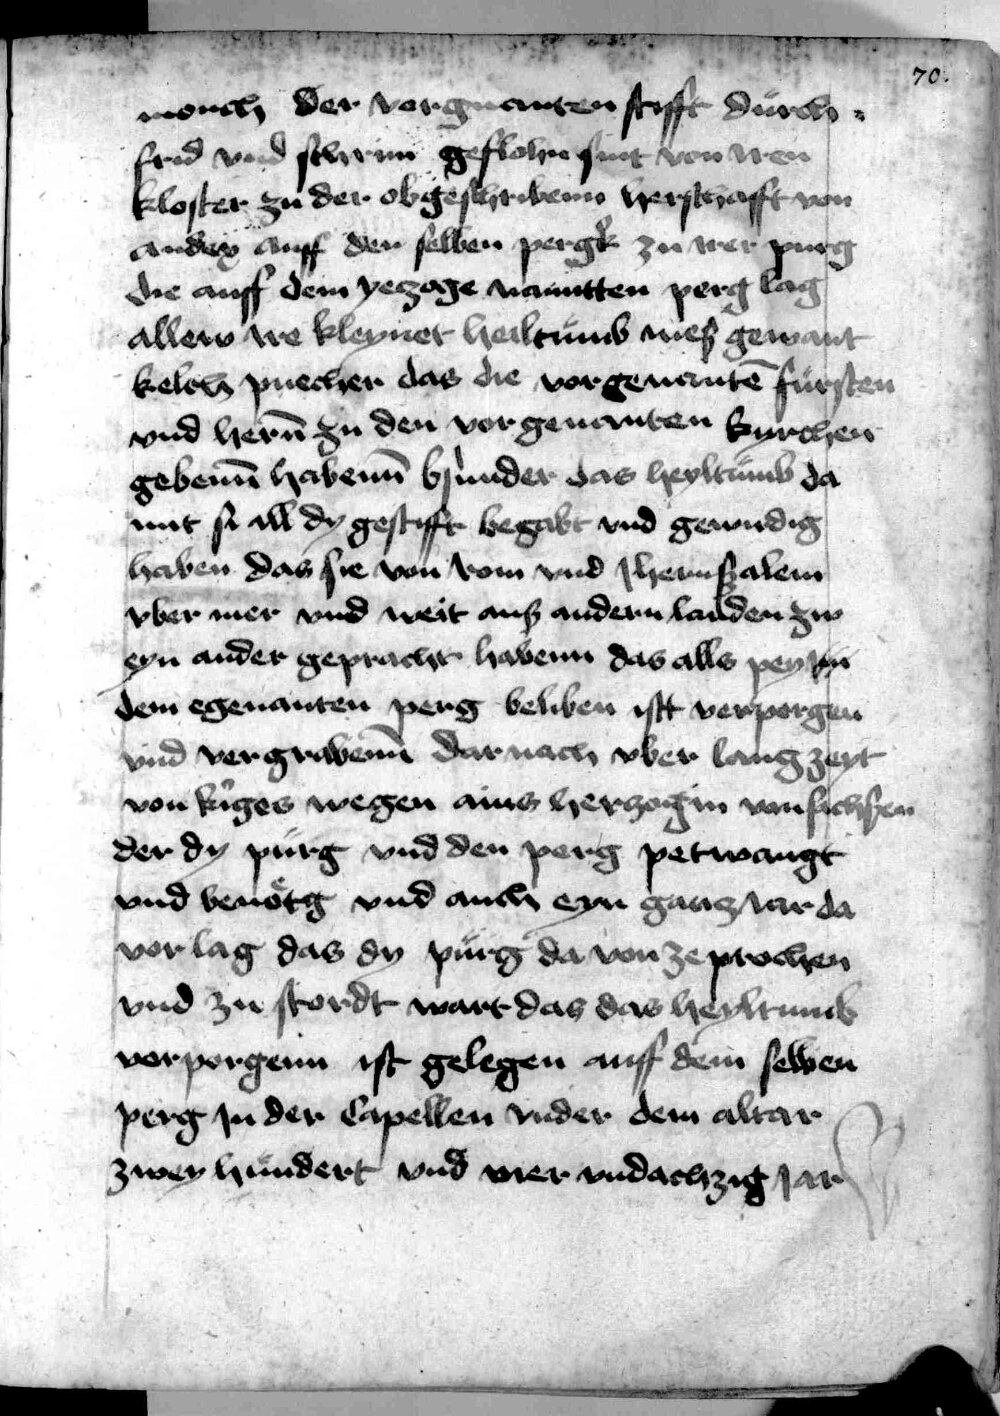 70.
monch der vorgnanten stifft dürch
frid vnd schrim geflohn sint von iren
kloster zu der obgeschribenn herschafft von
andex auff den selben pergk zu irer purg
die auff dem yeczoge nanntten perg lag
allew ire kleynet heiltümb mesz gewant
kelch puecher das die vorgenantē fürsten
vnd herñ zu den vorgenanten kyrchen
gebenn̄ habenn̄ bsunder das heyltümb da
mit si all dy gestifft begabt vnd gewirdig
haben das sie von rom vnd Jheruszalem
vber mer vnd weit ausz andern landen zw
eyn ander gepracht habenn das alls pey
dem egenanten perg beliben istt verporgen
vnd vergrabenn̄ darnach vber lang zeyt
von kriges wegen ains herzogin von sachszen
der dy pürg vnd den perg petwangt
vnd benötg vnd auch eyn gancz iar da
vor lag das dy pürg da von zeprochen
vnd zu stordt wart das das heyltumb
verporgenn ist gelegen auff dem selben
perg In der Capellen vnder dem altar
zwey hündert vnd vier vndachzig Jar